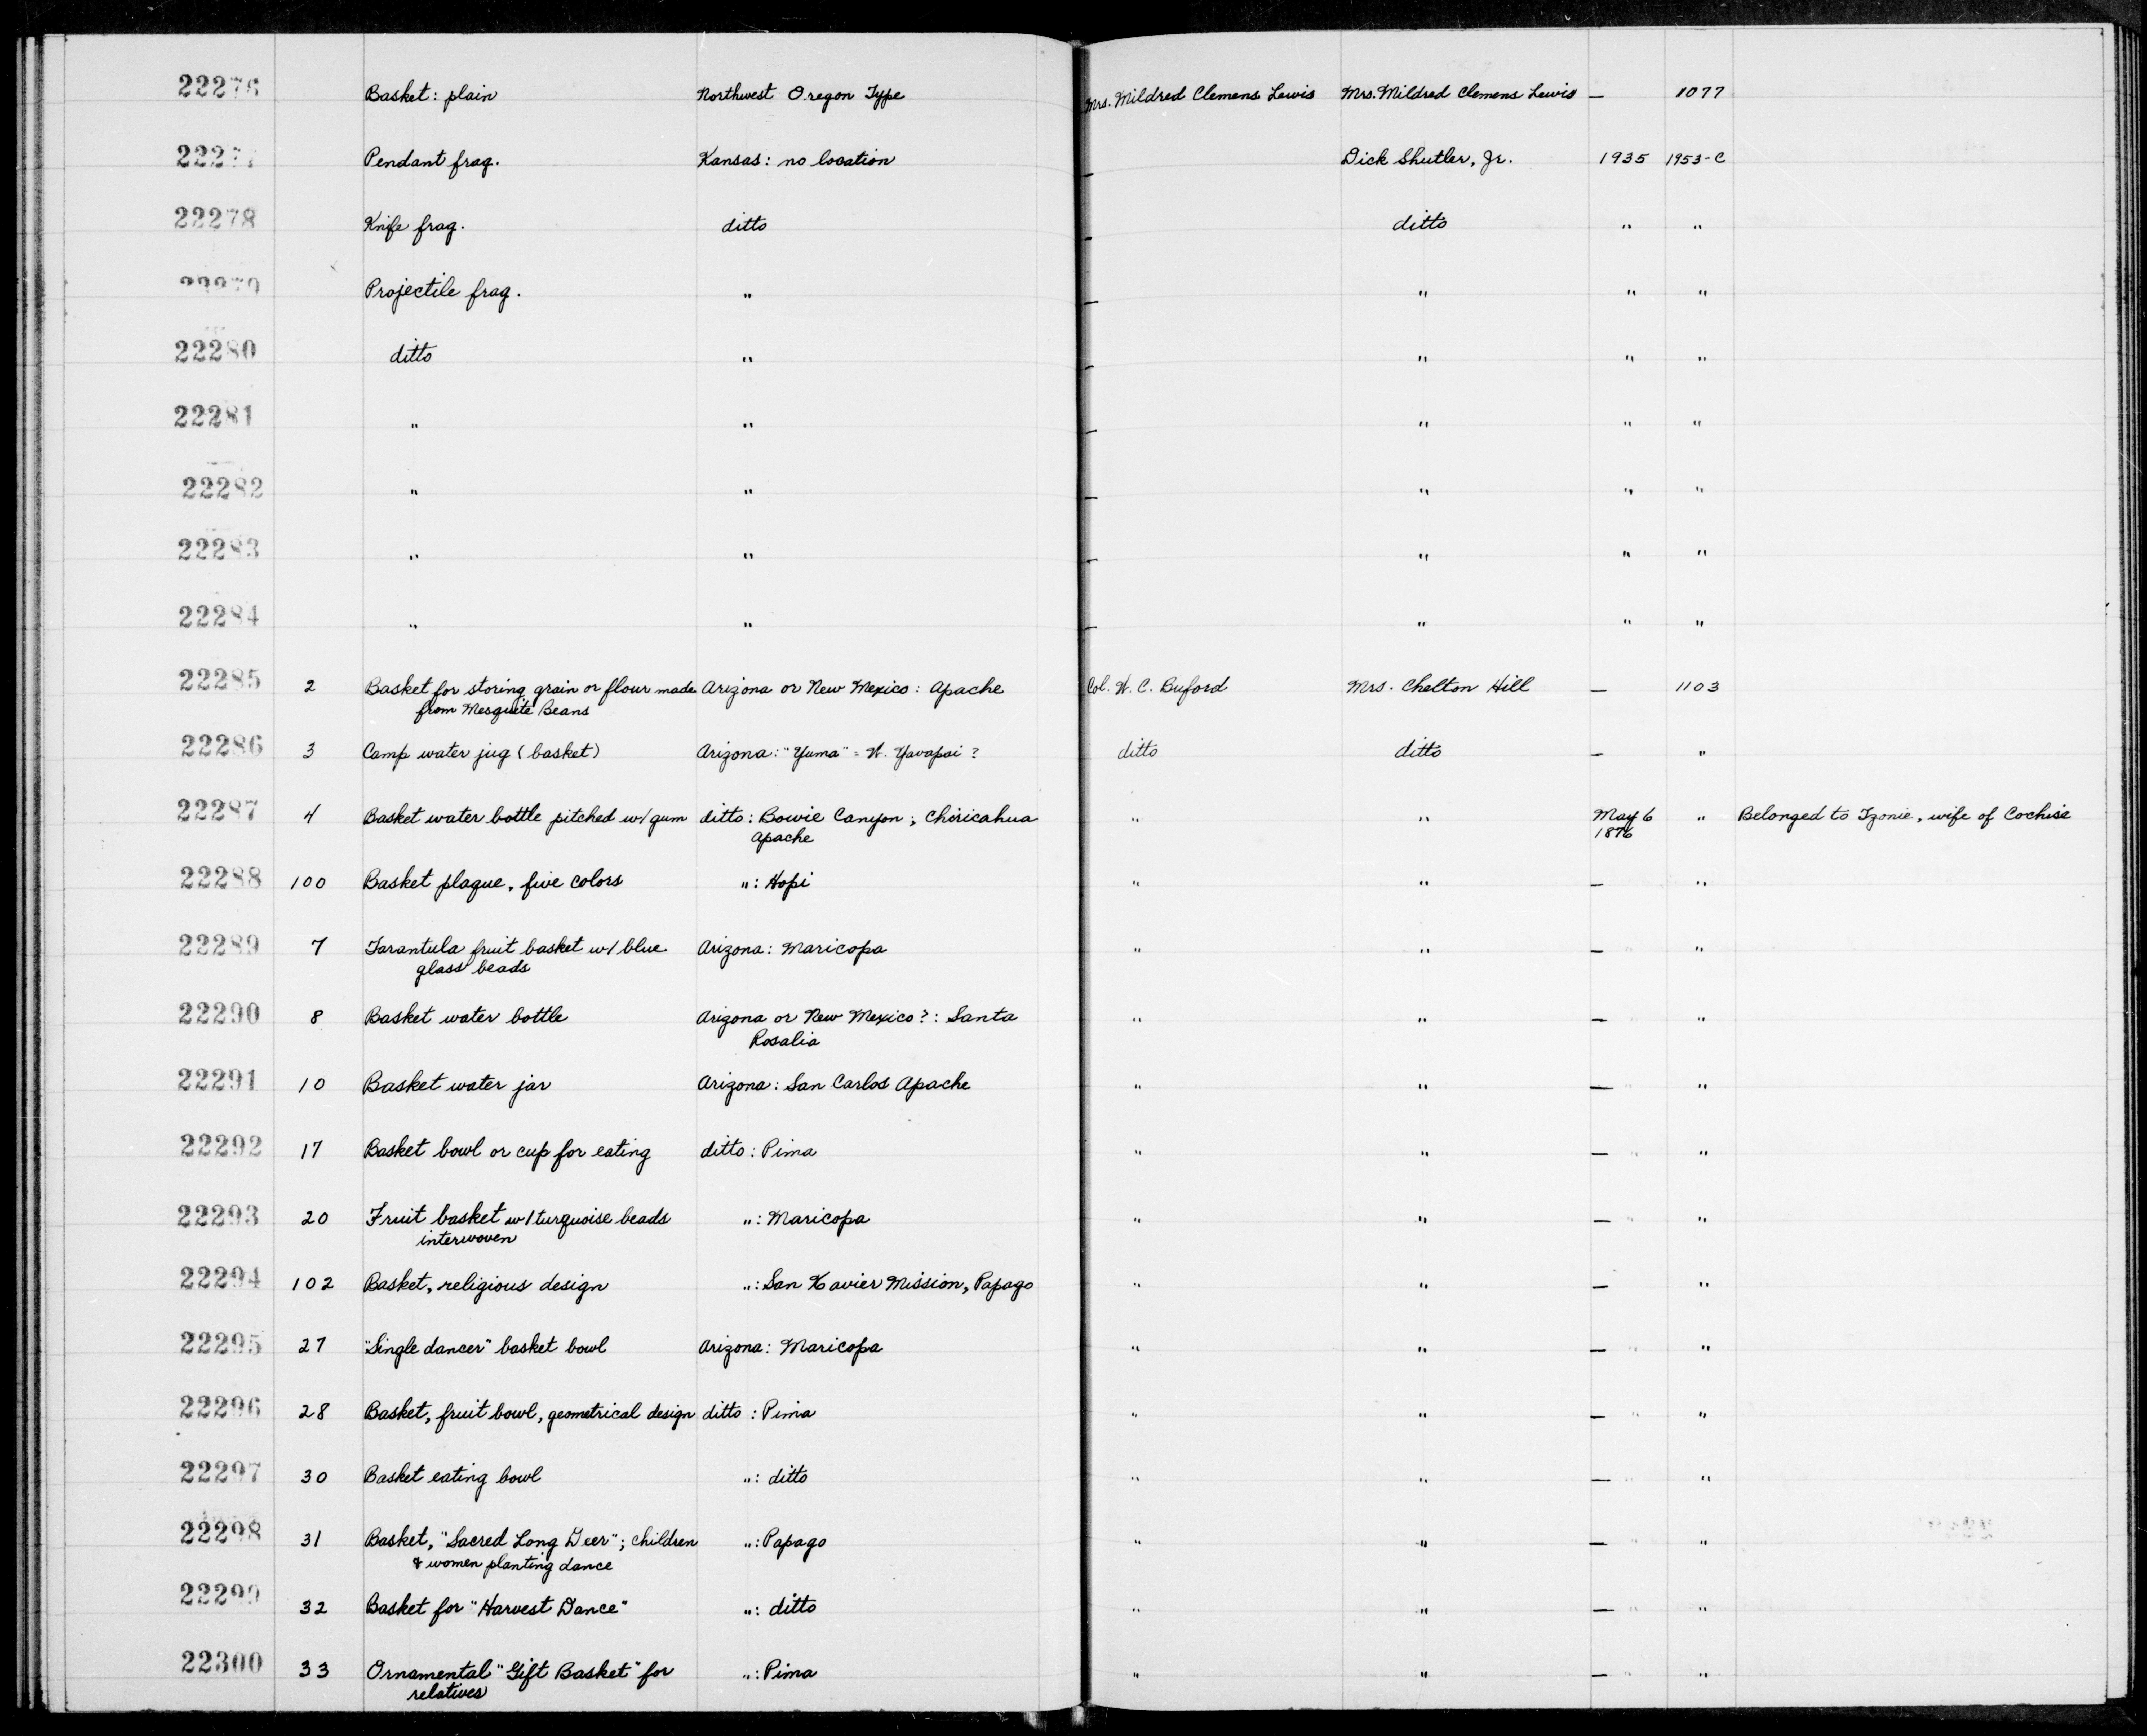 22276 Basket: plain Northwest Oregon Type Mrs. Mildred Clemens Lewis Mrs. Mildred Clemens Lewis — 1077
22277 Pendant frag. Kansas: no location — Dick Shutler, Jr. 1935 1953-C
22278 Knife frag. ditto — ditto " "
22279 Projectile frag. " — " " "
22280 ditto " — " " "
22281 " " — " " "
22282 " " — " " "
22283 " " — " " "
22284 " " — " " "
22285 2 Basket for storing grain or flour made Arizona or New Mexico: Apache Col. W. C. Buford Mrs. Chelton Hill — 1103
from Mesquite Beans
22286 3 Camp water jug (basket) Arizona: "Yuma" = W. Yavapai ? ditto ditto — "
22287 4 Basket water bottle pitched w/ gum ditto: Bowie Canyon; Chiricahua " " May 6 " Belonged to Tzonie, wife of Cochise
Apache 1876
22288 100 Basket plaque, five colors ": Hopi " " — "
22289 7 Tarantula fruit basket w/ blue Arizona: Maricopa " " — "
glass beads
22290 8 Basket water bottle Arizona or New Mexico?: Santa " " — "
Rosalia
22291 10 Basket water jar Arizona: San Carlos Apache " " — "
22292 17 Basket bowl or cup for eating ditto: Pima " " — "
22293 20 Fruit basket w/ turquoise beads ": Maricopa " " — "
interwoven
22294 102 Basket, religious design ": San Xavier Mission, Papago " " — "
22295 27 "Single dancer" basket bowl Arizona: Maricopa " " — "
22296 28 Basket, fruit bowl, geometrical design ditto: Pima " " — "
22297 30 Basket eating bowl ": ditto " " — "
22298 31 Basket, "Sacred Long Deer"; children ": Papago " " — "
& women planting dance
22299 32 Basket for "Harvest Dance" ": ditto " " — "
22300 33 Ornamental "Gift Basket" for ": Pima " " — "
relatives